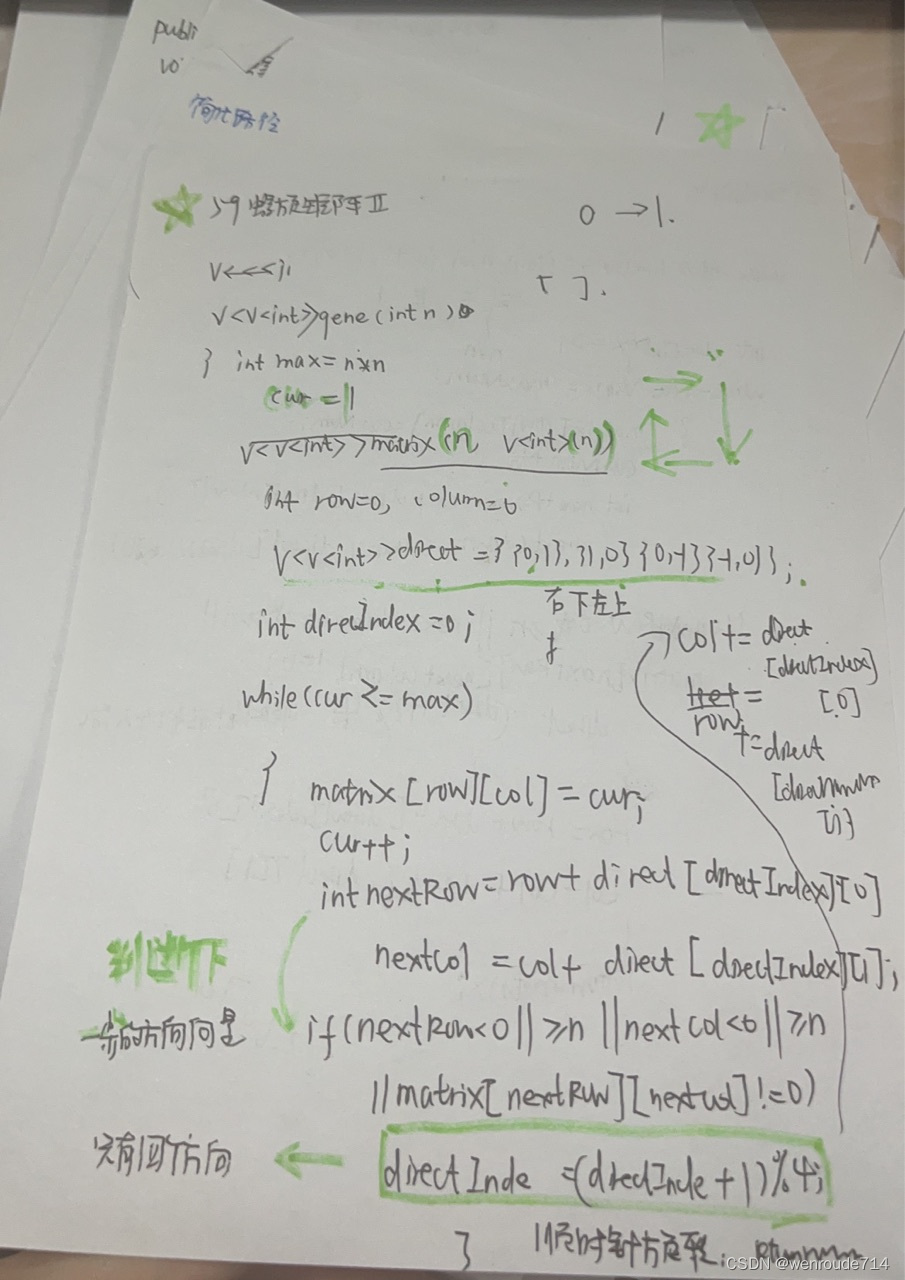 publi
vo
简化路径
59 螺旋矩阵 II
0 → 1.
V<<<
V<V<int>>gene(int n)
} int max=n*n
cur = 1
V<V<int>>matrix(n V<int>(n))
int row=0, column=0
V<V<int>>direct = {{0,1},{1,0}{0,-1}{-1,0}};
右下左上
int direcIndex=0;
col+= direct
[directIndex]
[0]
row
+=direct
while(cur <= max)
} matrix[row][col]=cur;
cur++;
int nextRow=row+ direct[directIndex][0]
nextCol =col+ direct[directIndex][1];
判断下
一步的方向问是
if(nextRow<0||≥n||nextCol<0||≥n
||matrix[nextRow][nextcol]!=0)
只有四个方向
← directInde =(direcInde+1)%4;
}
顺时针方旋转.
CSDN @wenroude714